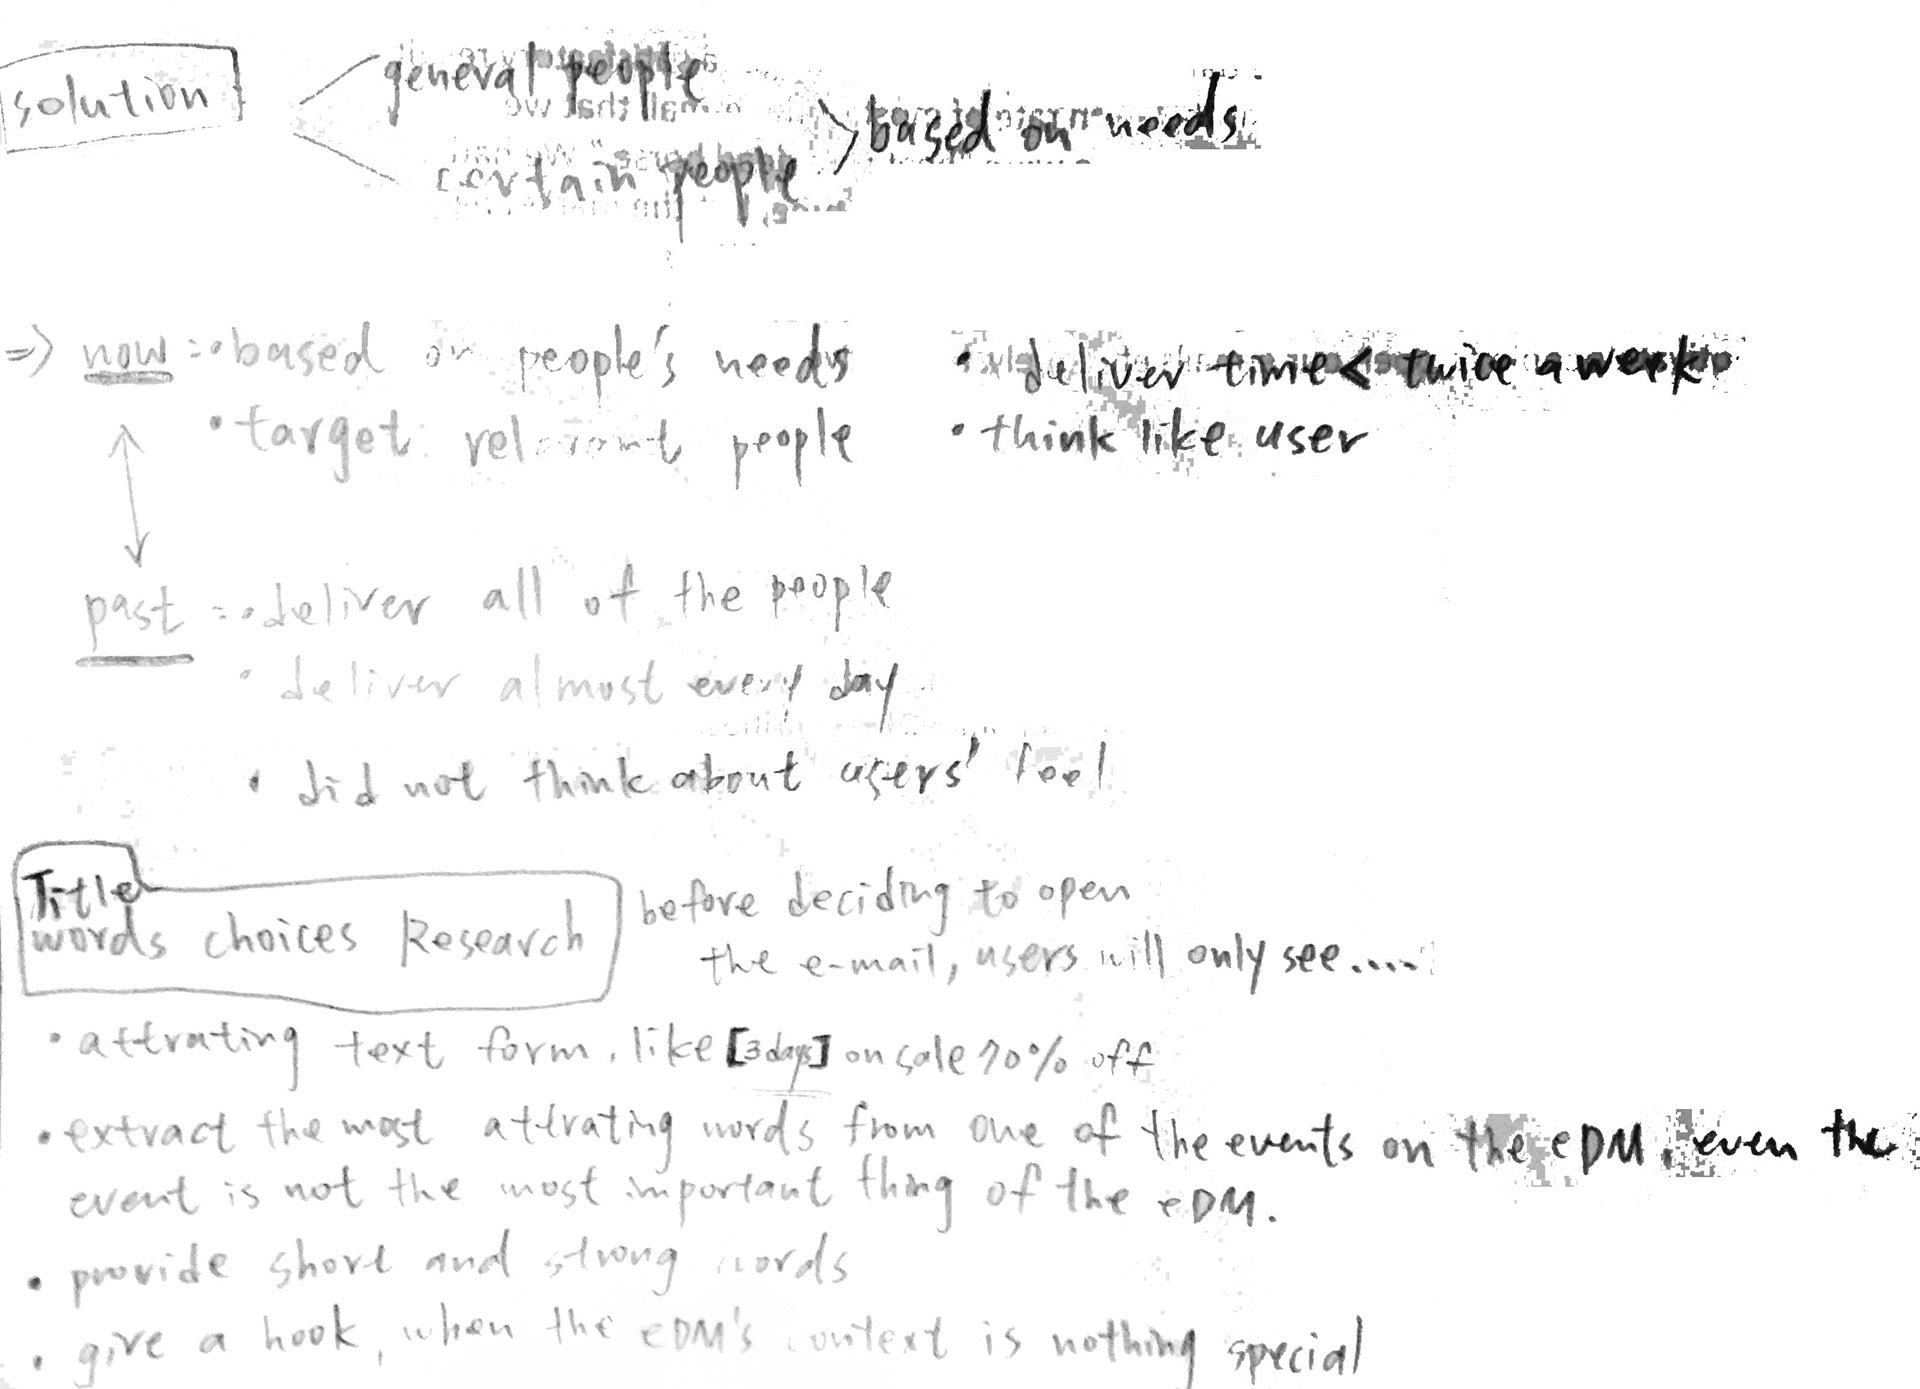 solution
general people
certain people
based on needs
=> now = • based on people's needs
• target relevant people
• deliver time < twice a week
• think like user
past = • deliver all of the people
• deliver almost every day
• did not think about users' feel
Title
words choices Research
before deciding to open
the e-mail, users will only see.....
• attrating text form, like [3 days] on sale 70% off
• extract the most attrating words from one of the events on the eDM, even the
event is not the most important thing of the eDM.
• provide short and strong words
• give a hook, when the eDM's context is nothing special